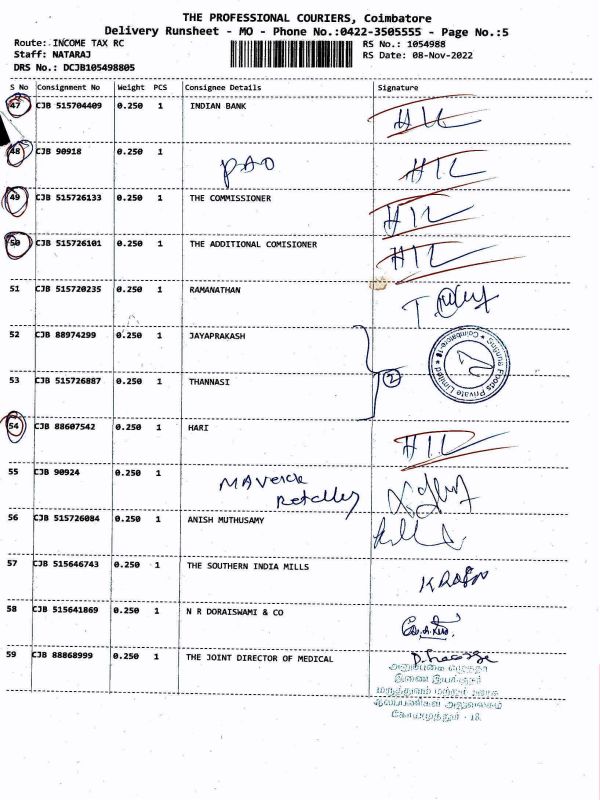 THE PROFESSIONAL COURIERS, Coimbatore
Delivery Runsheet - MO - Phone No.:0422-3505555 - Page No.:5
Route: INCOME TAX RC RS No.: 1054988
Staff: NATARAJ RS Date: 08-Nov-2022
DRS No.: DCJB105498805
S No Consignment No Weight PCS Consignee Details Signature
47 CJB 515704409 0.250 1 INDIAN BANK HIL
48 CJB 90918 0.250 1 PAO HIL
49 CJB 515726133 0.250 1 THE COMMISSIONER HIL
50 CJB 515726101 0.250 1 THE ADDITIONAL COMISIONER HIL
51 CJB 515720235 0.250 1 RAMANATHAN
52 CJB 88974299 0.250 1 JAYAPRAKASH
53 CJB 515726887 0.250 1 THANNASI 2
54 CJB 88607542 0.250 1 HARI HIL
55 CJB 90924 0.250 1 Maverick
56 CJB 515726084 0.250 1 ANISH MUTHUSAMY
57 CJB 515646743 0.250 1 THE SOUTHERN INDIA MILLS
58 CJB 515641869 0.250 1 N R DORAISWAMI & CO
59 CJB 88868999 0.250 1 THE JOINT DIRECTOR OF MEDICAL
இணை இயக்குநர்
மருத்துவம் மற்றும் ஊரக
அலுவலகம்
கோயமுத்தூர் - 18.